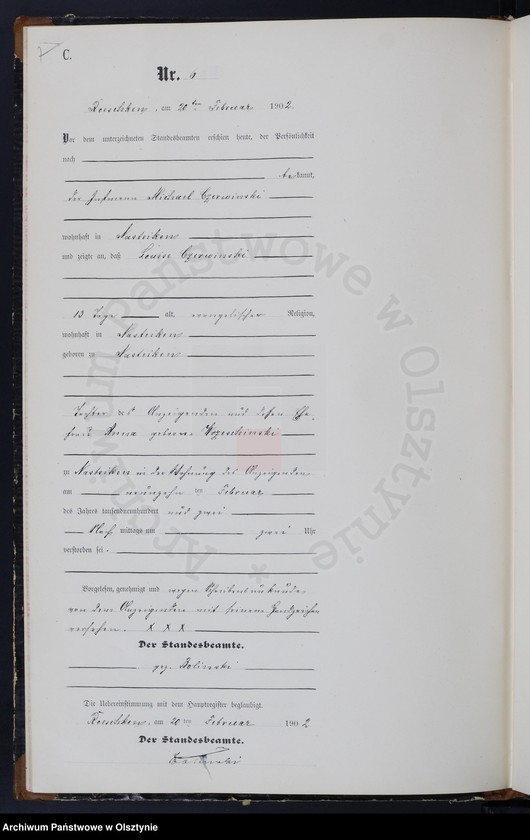 C.
Nr. 6
am 20ten Februar 1902.
Vor dem unterzeichneten Standesbeamten erschien heute, der Persönlichkeit
nach
bekannt,
der Instmann Michael Czerwinski
wohnhaft in Nasteiken
und zeigte an, daß Louise Czerwinski
13 Tage alt, evangelischer Religion,
wohnhaft in Nasteiken
geboren zu Nasteiken
Tochter des Anzeigenden und dessen Ehe-
frau Anna geborene
zu Nasteiken in der Wohnung des Anzeigenden
am neunzehnten Februar
des Jahres tausendneunhundert und zwei
Nachmittags um zwei Uhr
verstorben sei.
Vorgelesen, genehmigt und wegen Schreibensunkunde
von dem Anzeigenden mit seinem Handzeichen
versehen. X X X
Der Standesbeamte.
gez.
Die Uebereinstimmung mit dem Hauptregister beglaubigt.
am 20ten Februar 1902
Der Standesbeamte.
Archiwum Państwowe w Olsztynie *
Archiwum Państwowe w Olsztynie